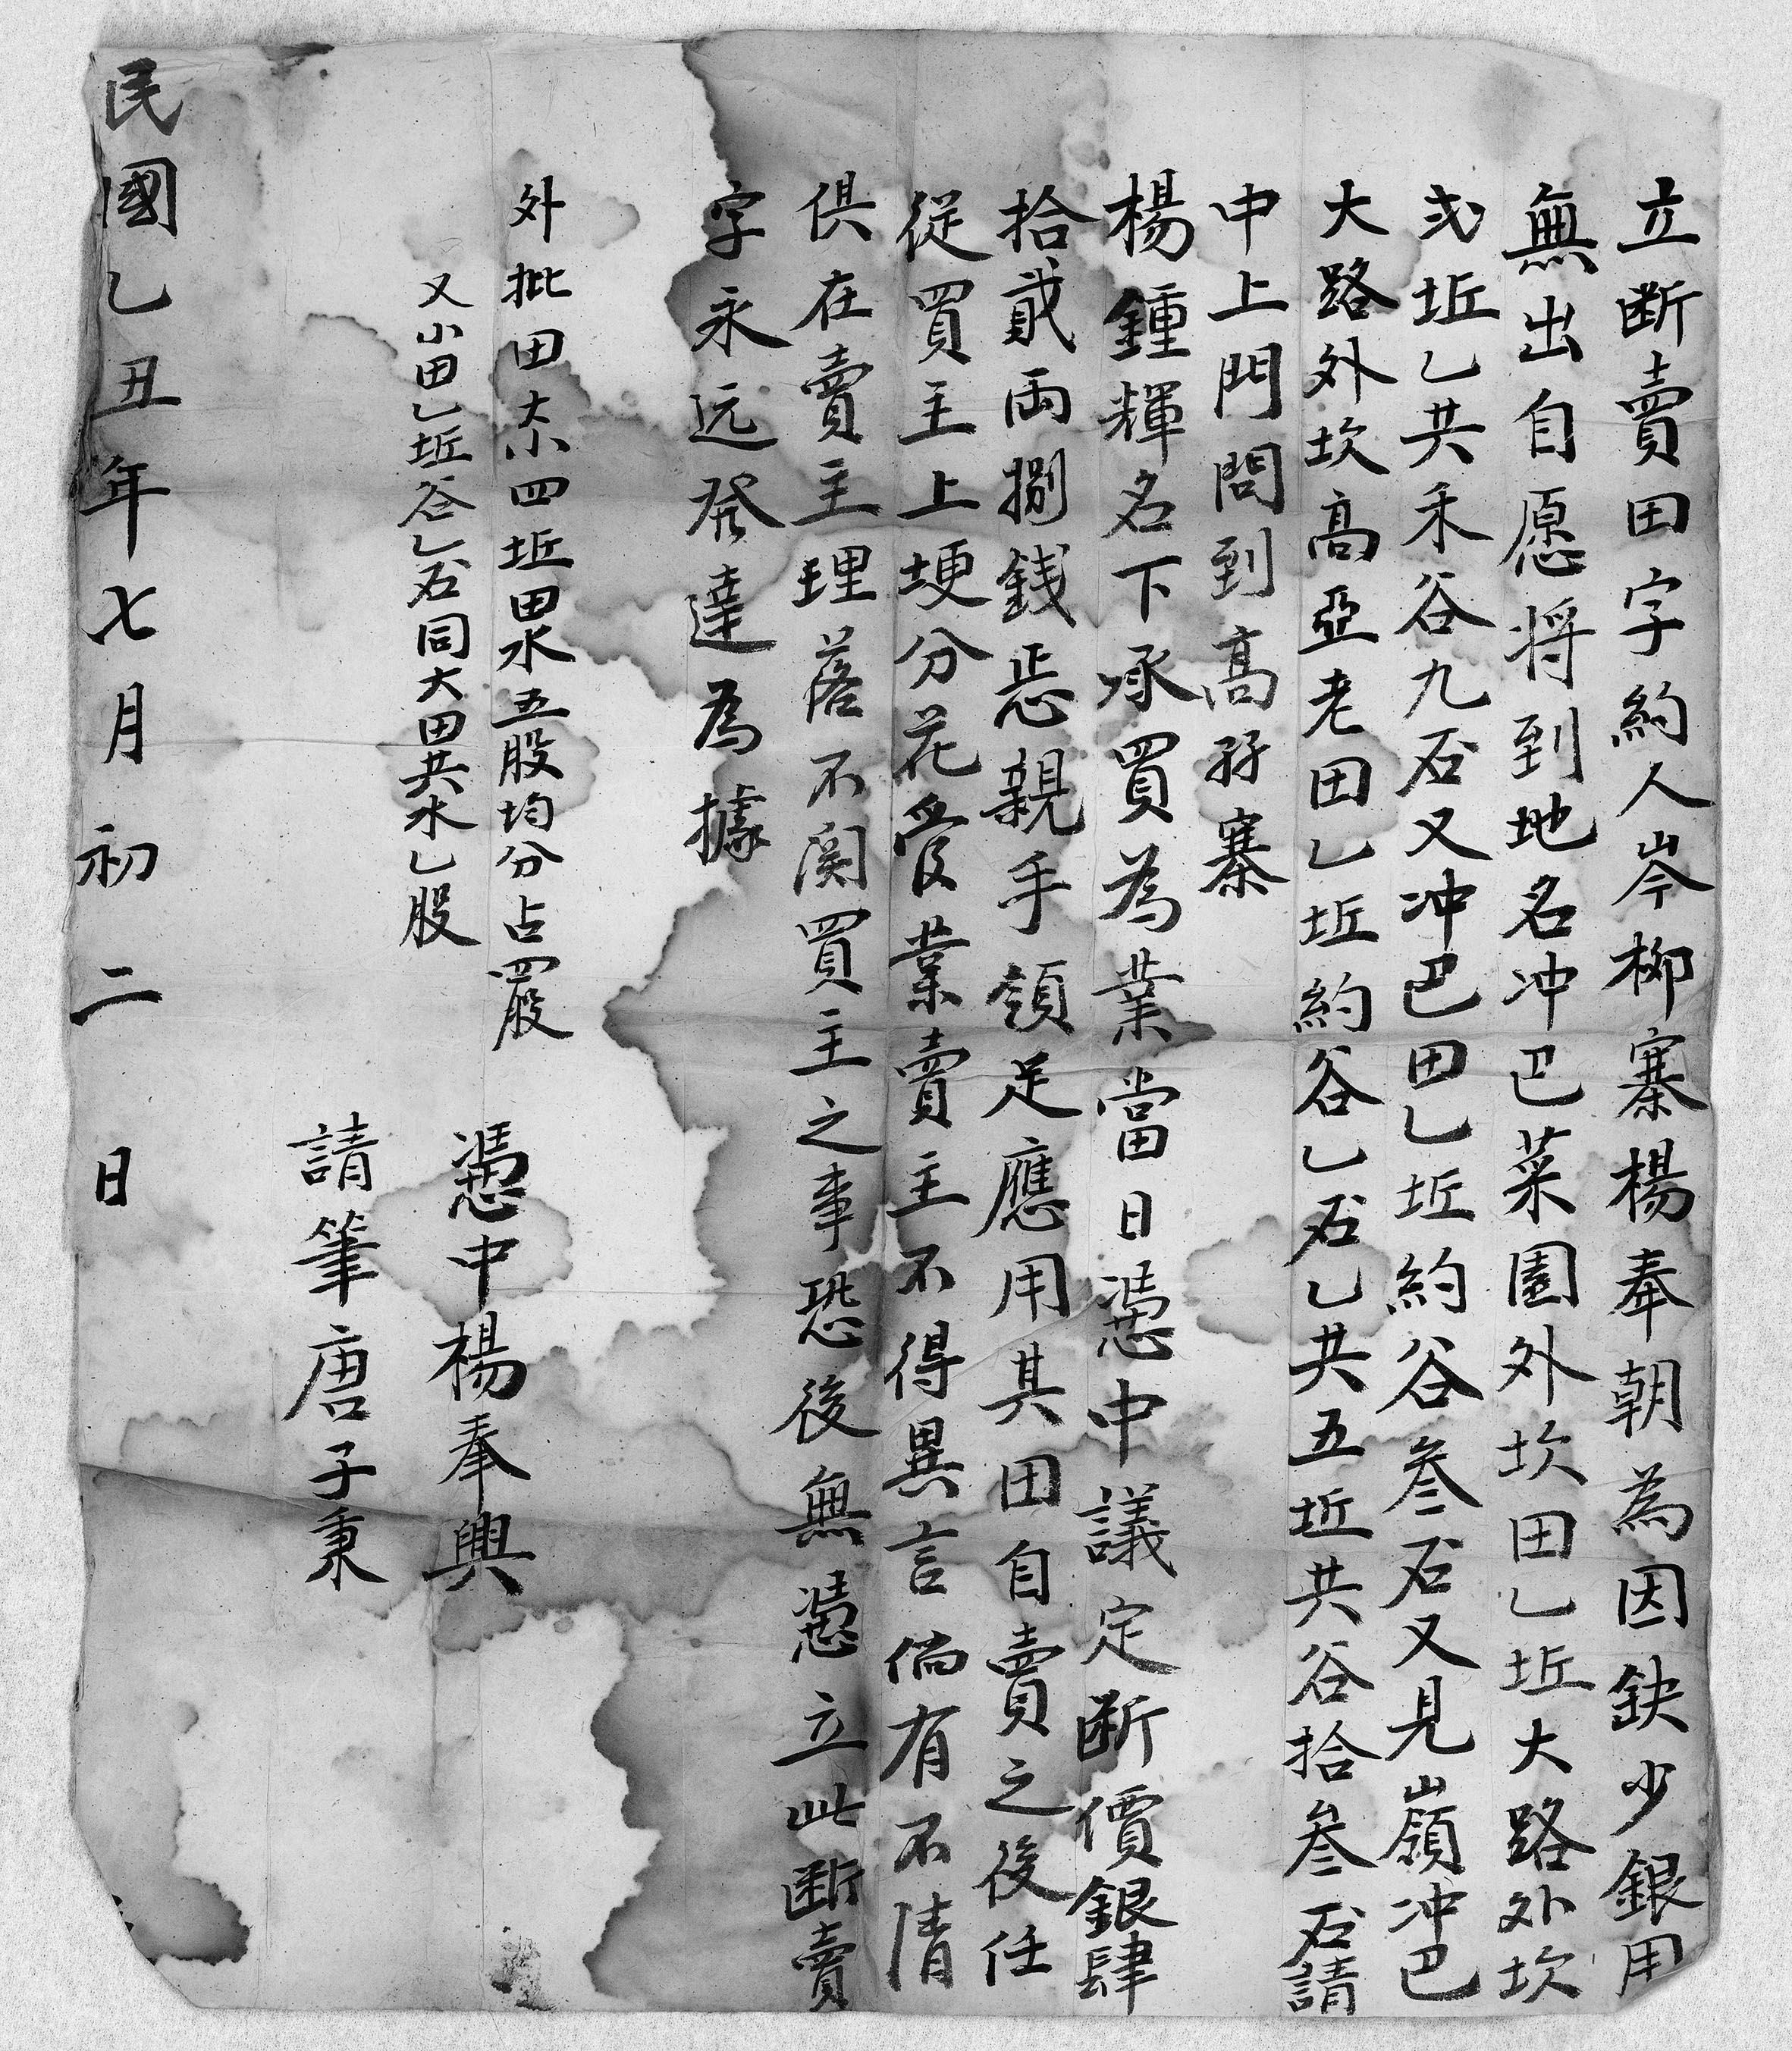 立断賣田字約人岑柳寨楊奉朝為因鈌少銀用
無出自愿将到地名冲巴菜園外坎田乙坵大路外坎
弍坵乙共禾谷九石又冲巴田乙坵約谷叁石又見嶺冲巴
大路外坎高亞老田乙坵約谷乙石乙共五坵共谷拾叁石請
中上門問到高孖寨
楊鍾輝名下承買為業當日憑中議定断價銀肆
拾貮両捌銭㤙親手領足應用其田自賣之後任
從買主上埂分花管業賣主不得異言倘有不清
俱在賣主理落不関買主之事恐後無憑立此断賣
字永远發達為據
外批田大小四坵田水五股均分占四股
又小田乙坵谷乙石同大田共水乙股
憑中楊奉興
請筆唐子秉
民國乙丑年七月初二日